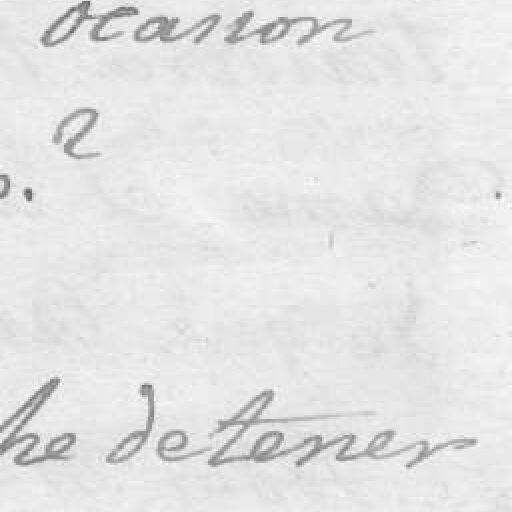 ocasion
2
o.
he detener